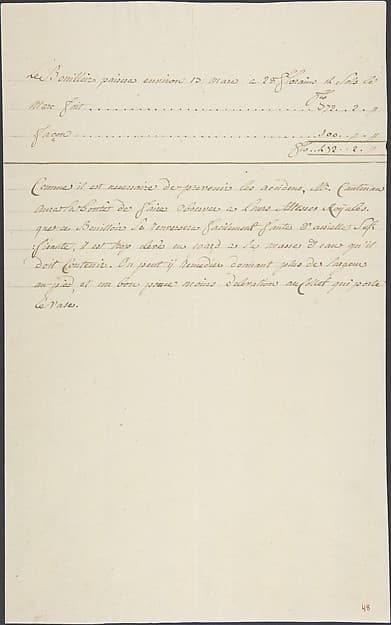 Le Bouilloir pesera environ 13 marc a 28 florains 12 Sols le
Marc fait ........ flo 372 .. 2 .. "
façon ........ 100 .. " .. "
flo .. 472 .. 2 .. "
Comme il est necessaire de prevenir les accidens, Mr.
aura la bonté de faire observer a leurs Altesses Royales
que ce Bouilloir se renversera facilement faute d'assiette Suf-
-fisante, il est trop elevé en egard a la masse d'eau qu'il
doit Contenir. On peut ij Remedier donnant plus de largeur
au pied, et un bon pouce moins d'elevation au Collet qui porte
le Vase.
48